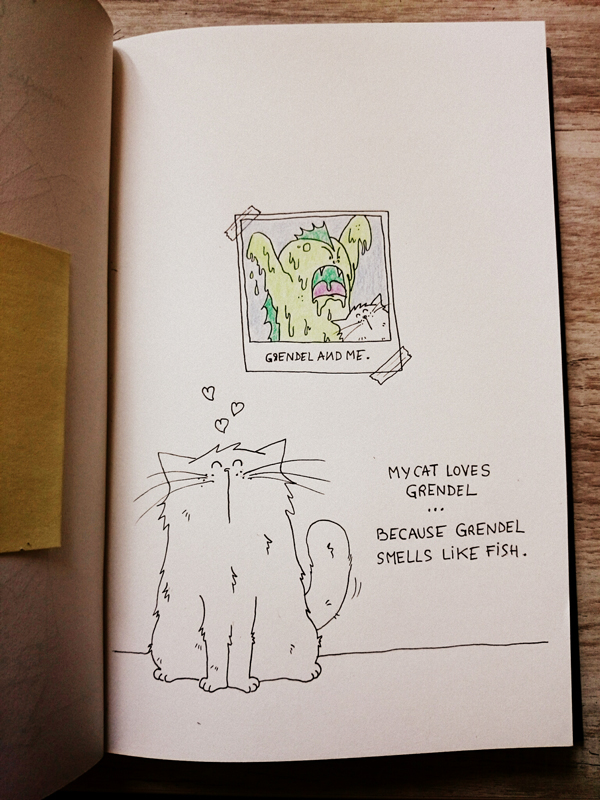 GRENDEL AND ME.
MY CAT LOVES
GRENDEL
...
BECAUSE GRENDEL
SMELLS LIKE FISH.